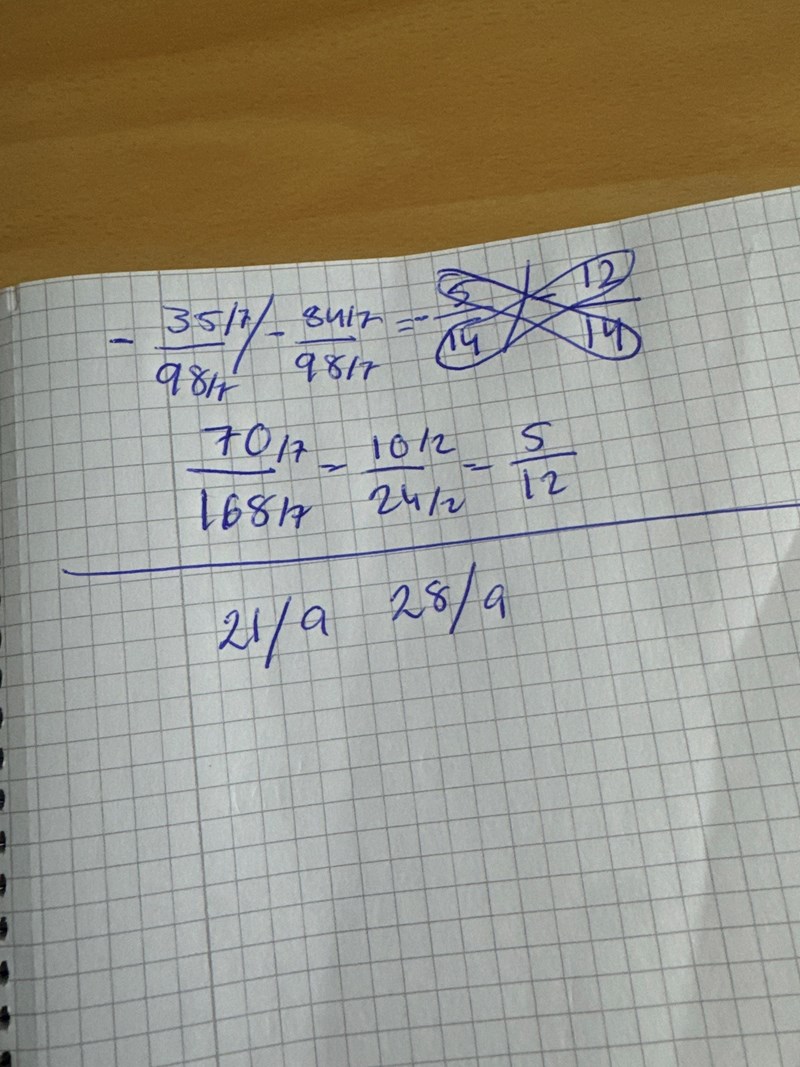 - 35/7 / 98/7 / - 84/7 / 98/7 = - 5/14 / - 12/14
70/7 / 168/7 = 10/2 / 24/2 = 5/12
21/a 28/a